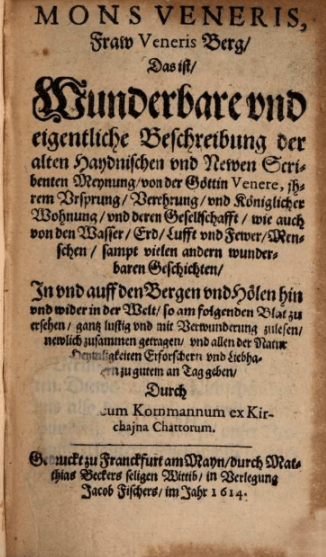 MONS VENERIS,
Fraw Veneris Berg/
Das ist/
Wunderbare vnd
eigentliche Beschreibung der
alten Haydnischen vnd Newen Scri-
benten Meynung/ von der Göttin Venere, jh-
rem Vrsprung/ Verehrung/ vnd Königlicher
Wohnung/ vnd deren Gesellschafft/ wie auch
von den Wasser/ Erd/ Lufft vnd Fewer/ Men-
schen/ sampt vielen andern wunder-
baren Geschichten/
In vnd auff den Bergen vnd Hölen hin
vnd wider in der Welt/ so am folgenden Blat zu
ersehen/ gantz lustig vnd mit Verwunderung zulesen/
newlich zusammen getragen/ vnd allen der Natur
Heymligkeiten Erforschern vnd Liebha-
zu gutem an Tag geben/
Durch
cum Kornmannum ex Kir-
chajna Chattorum.
Gedruckt zu Franckfurt am Mayn/ durch Mat-
thias Beckers seligen Wittib/ in Verlegung
Jacob Fischers/ im Jahr 1614.